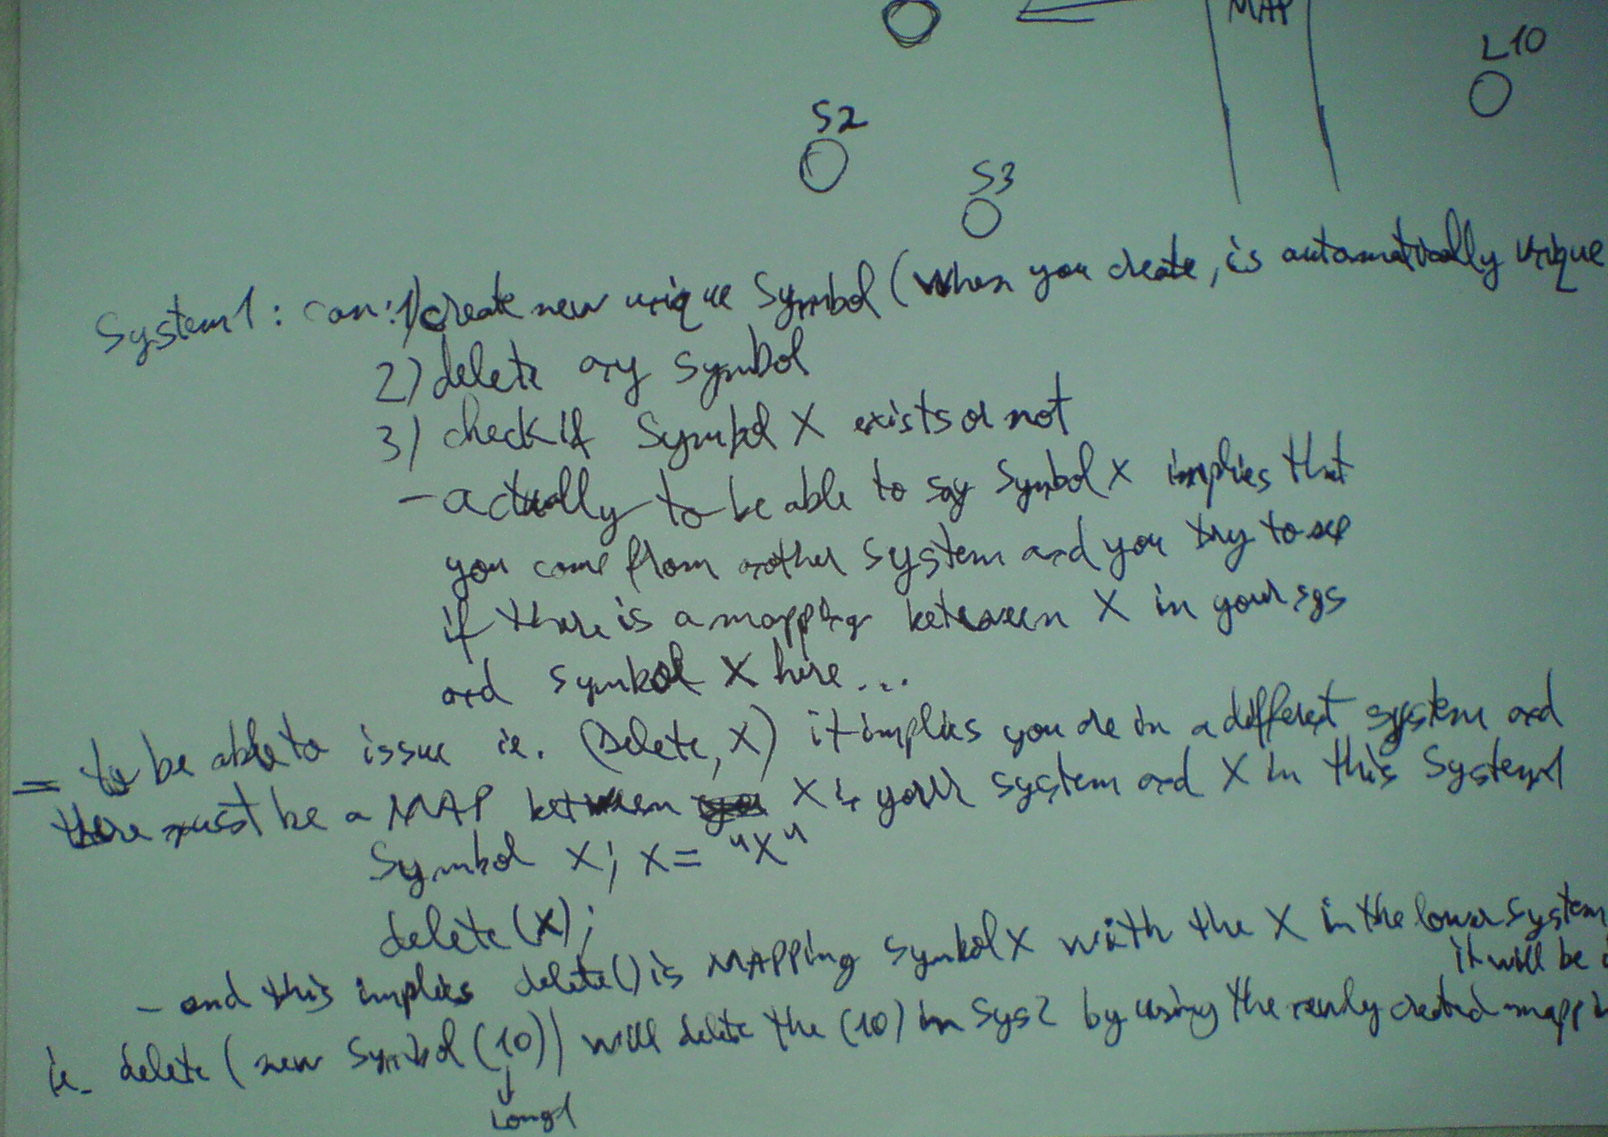 MAP
L10
S2
S3
System1: can: 1) create new unique Symbol (when you create, is automatically unique
2) delete any symbol
3) check if Symbol X exists or not
- actually to be able to say symbol X implies that
you come from another system and you try to see
if there is a mapping between X in your sys
and symbol X here...
= to be able to issue ie. (Delete, X) it implies you are in a different system and
there must be a MAP between X in your system and X in this System1
Symbol x; x = "X"
delete(x);
- and this implies delete() is MAPPing symbol x with the X in the lower system
it will be
ie. delete (new Symbol(10)) will delete the (10) in Sys2 by using the newly created mapp
Long1